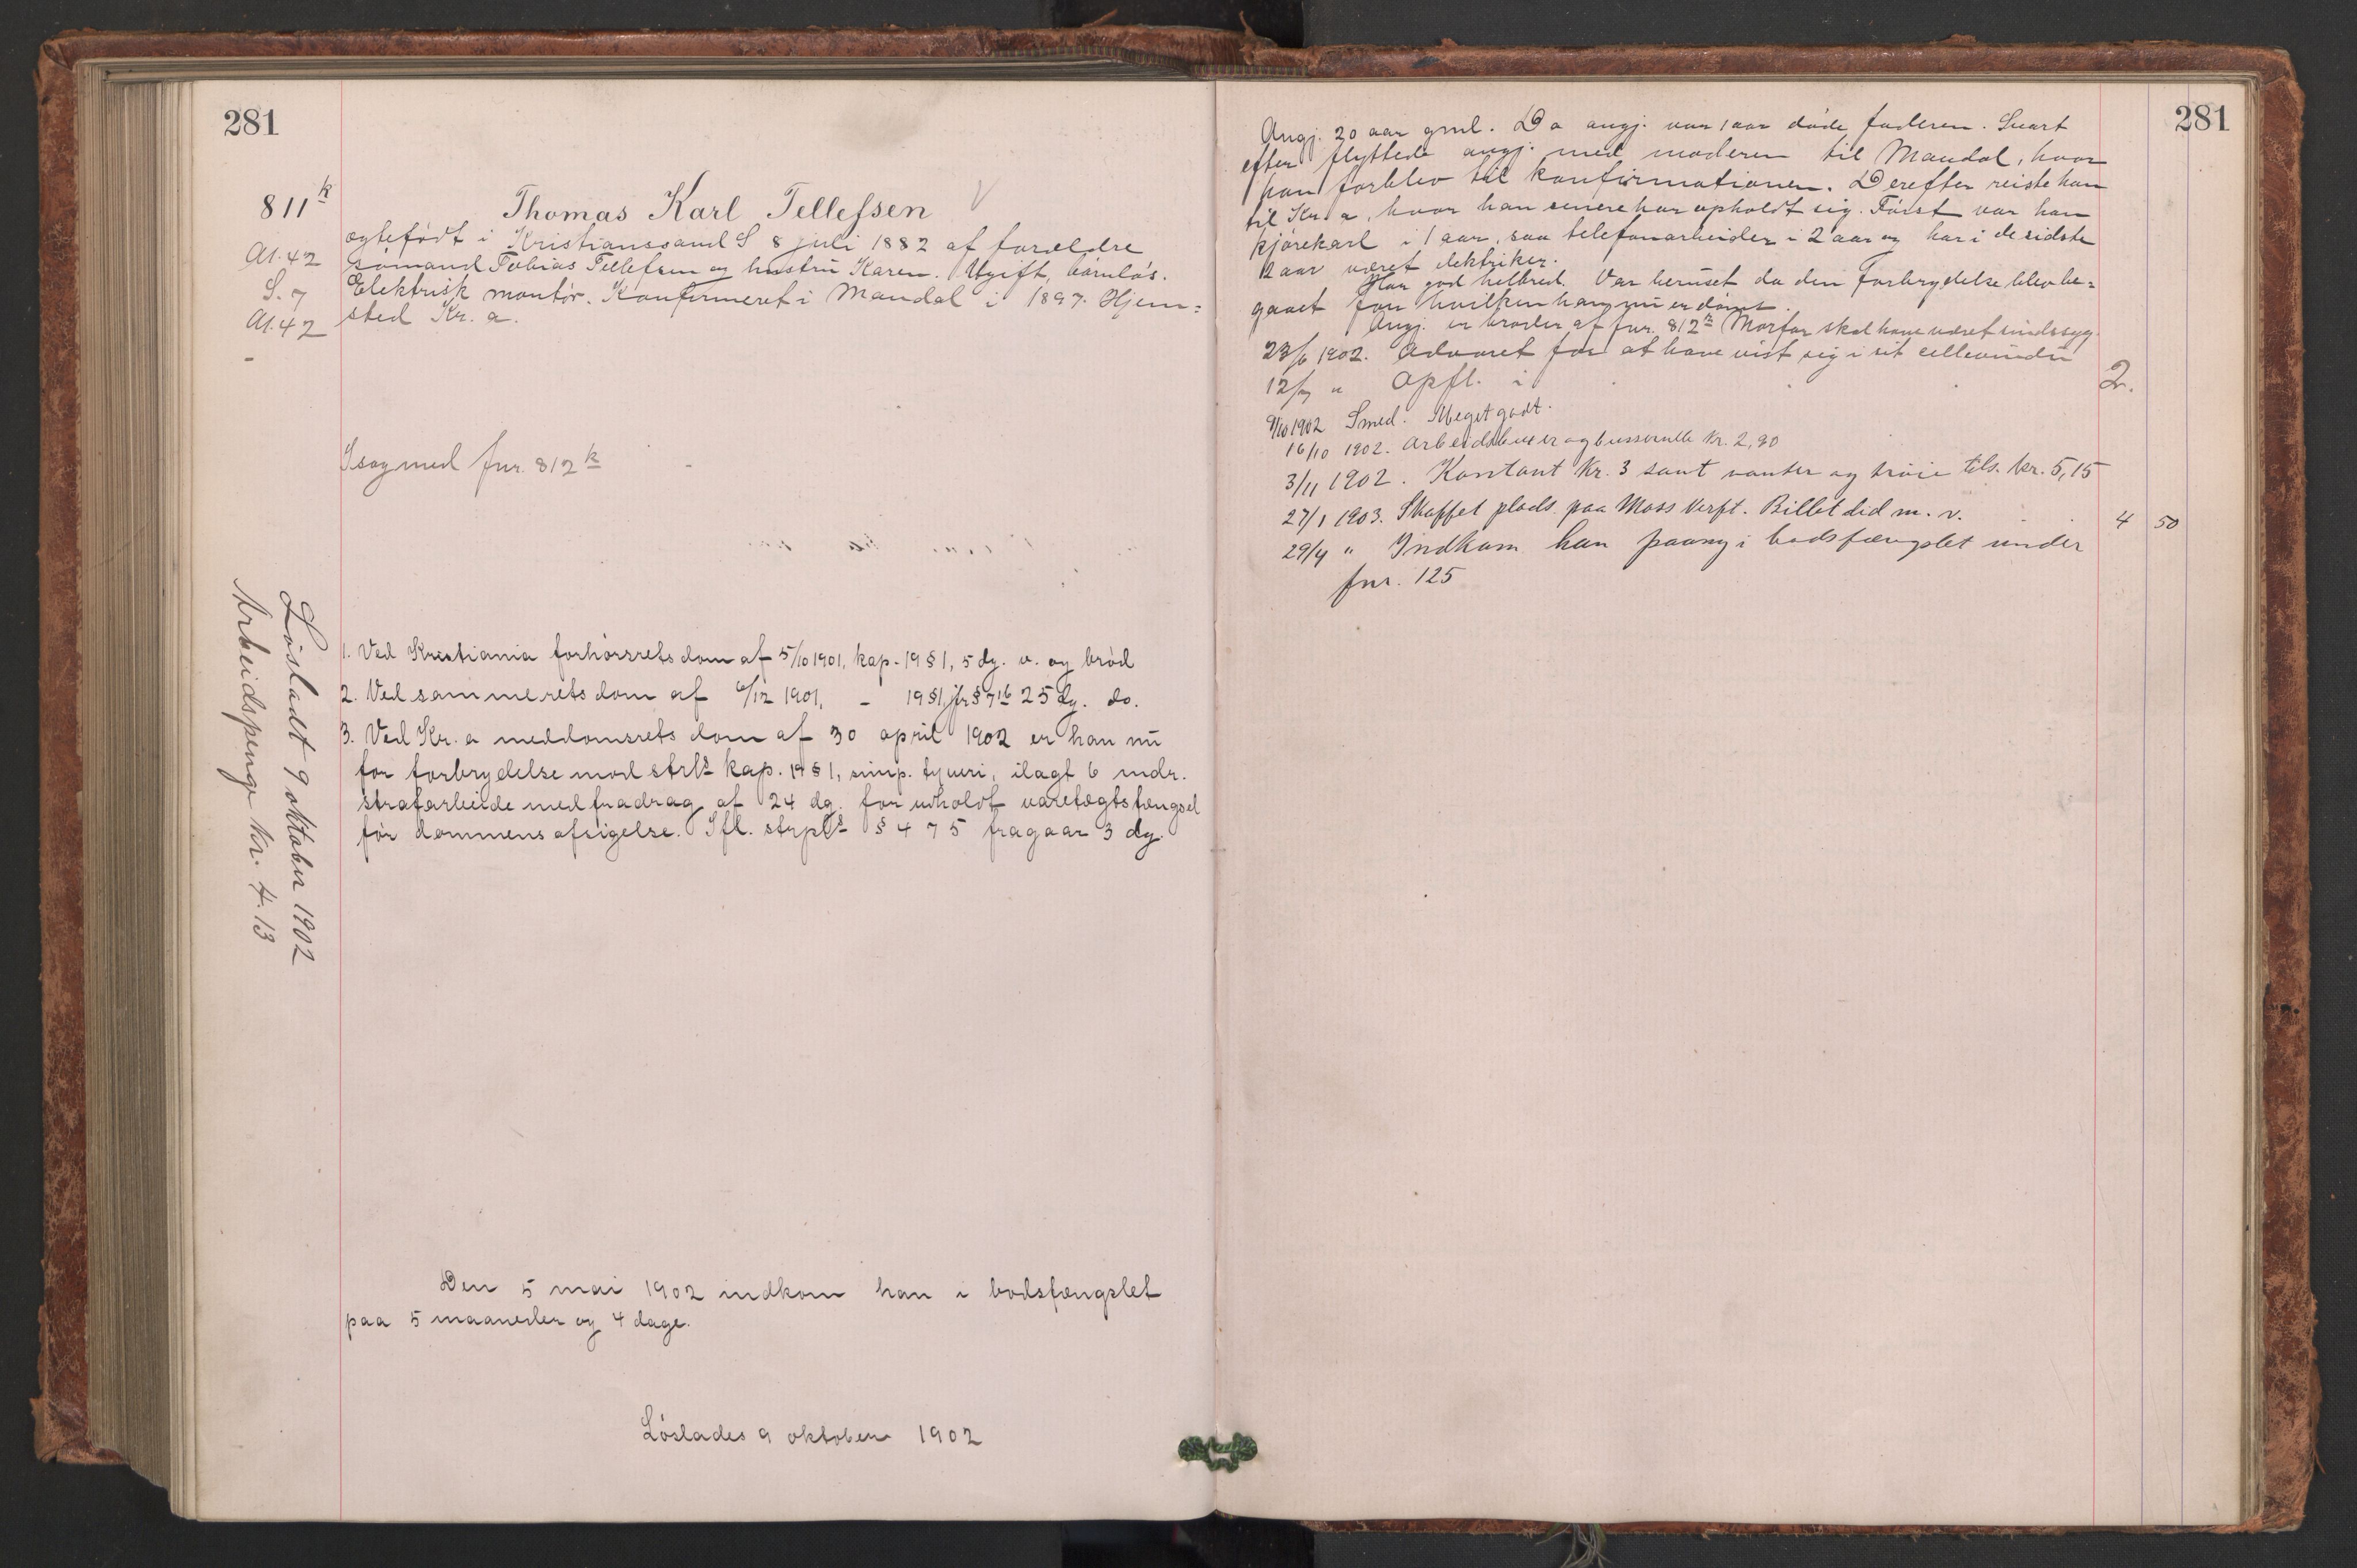 281
811k
Thomas Karl Tellefsen V
Al. 42
S. 7
Al. 42
-
egtefødt i Kristianssand S 8 juli 1882 af forældre
sømand Tobias Tellefsen og hustru Karen. Ugift, barnløs.
Elektrisk montør. Konfirmeret i Mandal i 1897. Hjem=
sted Kr.a.
I sag med fnr. 812k -
Løsladt 9 oktober 1902
Arbeidspenge kr. 4.13
1. Ved Kristiania forhørsrets dom af 5/10 1901, kap. 19 § 1, 5 dg. v. og brød
2. Ved samme rets dom af 6/12 1901, - 19 § 1, jfr § 7 16 25 dg. do.
3. Ved Kr.a meddomsrets dom af 30 april 1902 er han nu
for forbrydelse mod strls kap. 19 § 1, simp. tyveri, ilagt 6 mdr.
strafarbeide med fradrag af 24 dg. for udholdt varetægtsfængsel
før dommens afsigelse. Ifl. strpls § 475 fragaar 3 dg.
Den 5 mai 1902 indkom han i bodsfængslet
paa 5 maaneder og 4 dage.
Løslades 9 oktober 1902
281
Angj. 20 aar gml. Da angj. var 1 aar døde faderen. Snart
efter flyttede angj. med moderen til Mandal, hvor
han forblev til konfirmationen. Derefter reiste han
til Kr.a, hvor han senere har opholdt sig. Først var han
kjørekarl i 1 aar, saa telefonarbeider i 2 aar og har i de sidste
2 aar været elektriker.
Har god helbred. Var beruset da den forbrydelse blev be=
gaaet for hvilken han nu er dømt.
Angj. er broder af fnr. 812k Morfar skal have været sindssyg.
23/6 1902. Advaret for at have vist sig i sit cellevindu
12/7 " Opfl. i 2.
9/10 1902 Smed. Meget godt.
16/10 1902. Arbeidsbuxer og busserulle kr. 2,90
3/11 1902. Kontant kr. 3 samt vanter og trøie tils. kr. 5,15
27/1 1903. Skaffet plads paa Moss Verft. Billet did m. v. 4 50
29/4 " Indkom han paany i bodsfængslet under
fnr. 125